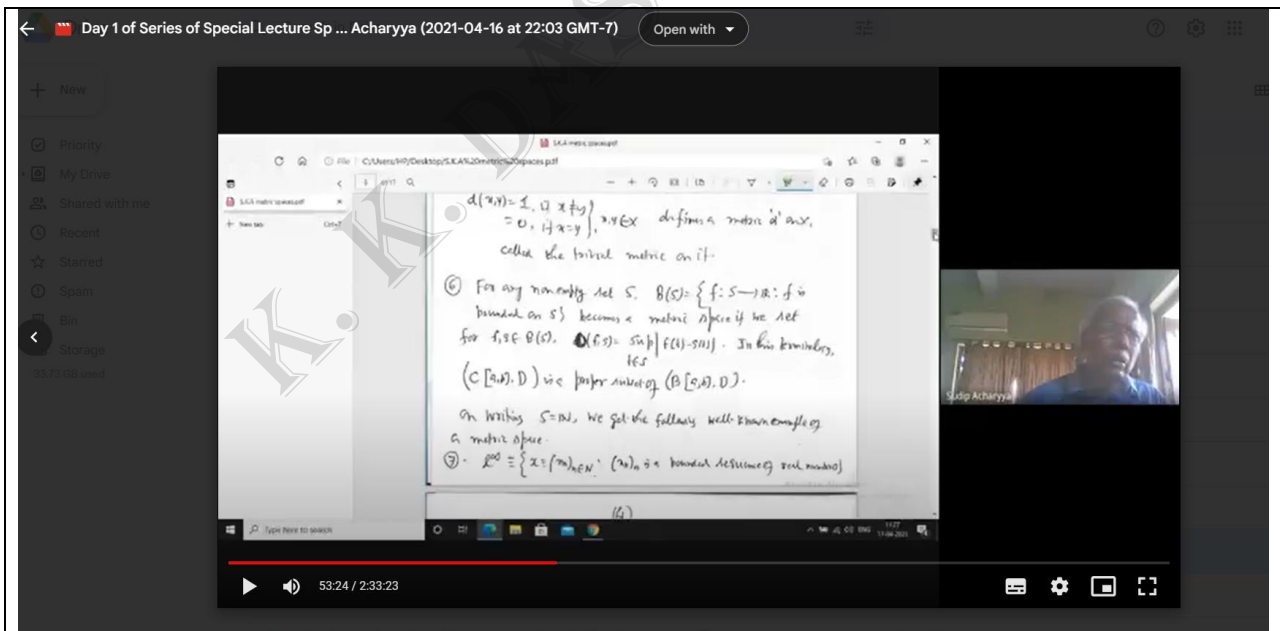 Day 1 of Series of Special Lecture Sp ... Acharyya (2021-04-16 at 22:03 GMT-7)
Open with
New
Priority
My Drive
Shared with me
Recent
Starred
Spam
Bin
Storage
35.73 GB used
S.K.A metric spaces.pdf
File C:/Users/HP/Desktop/S.K.A%20metric%20spaces.pdf
S.K.A metric spaces.pdf
New tab
d(x,y)= 1, if x≠y
= 0, if x=y }, x,y∈X defines a metric 'd' on X,
called the trivial metric on it.
⑥ For any nonempty set S, B(S)= { f: S→R: f is
bounded on S} becomes a metric space if we set
for f,g ∈ B(S), D(f,g)= sup |f(t)-g(t)|. In this terminology,
t∈S
(C[a,b], D) is a proper subset of (B[a,b], D).
On writing S=N, we get the following well-known example of
a metric space.
⑦. l^∞ ≡ { x≡(xn)n∈N : (xn)n is a bounded sequence of real numbers}
(4)
Sudip Acharyya
Type here to search
ENG
11:27
17-04-2021
53:24 / 2:33:23
K. K. DAS